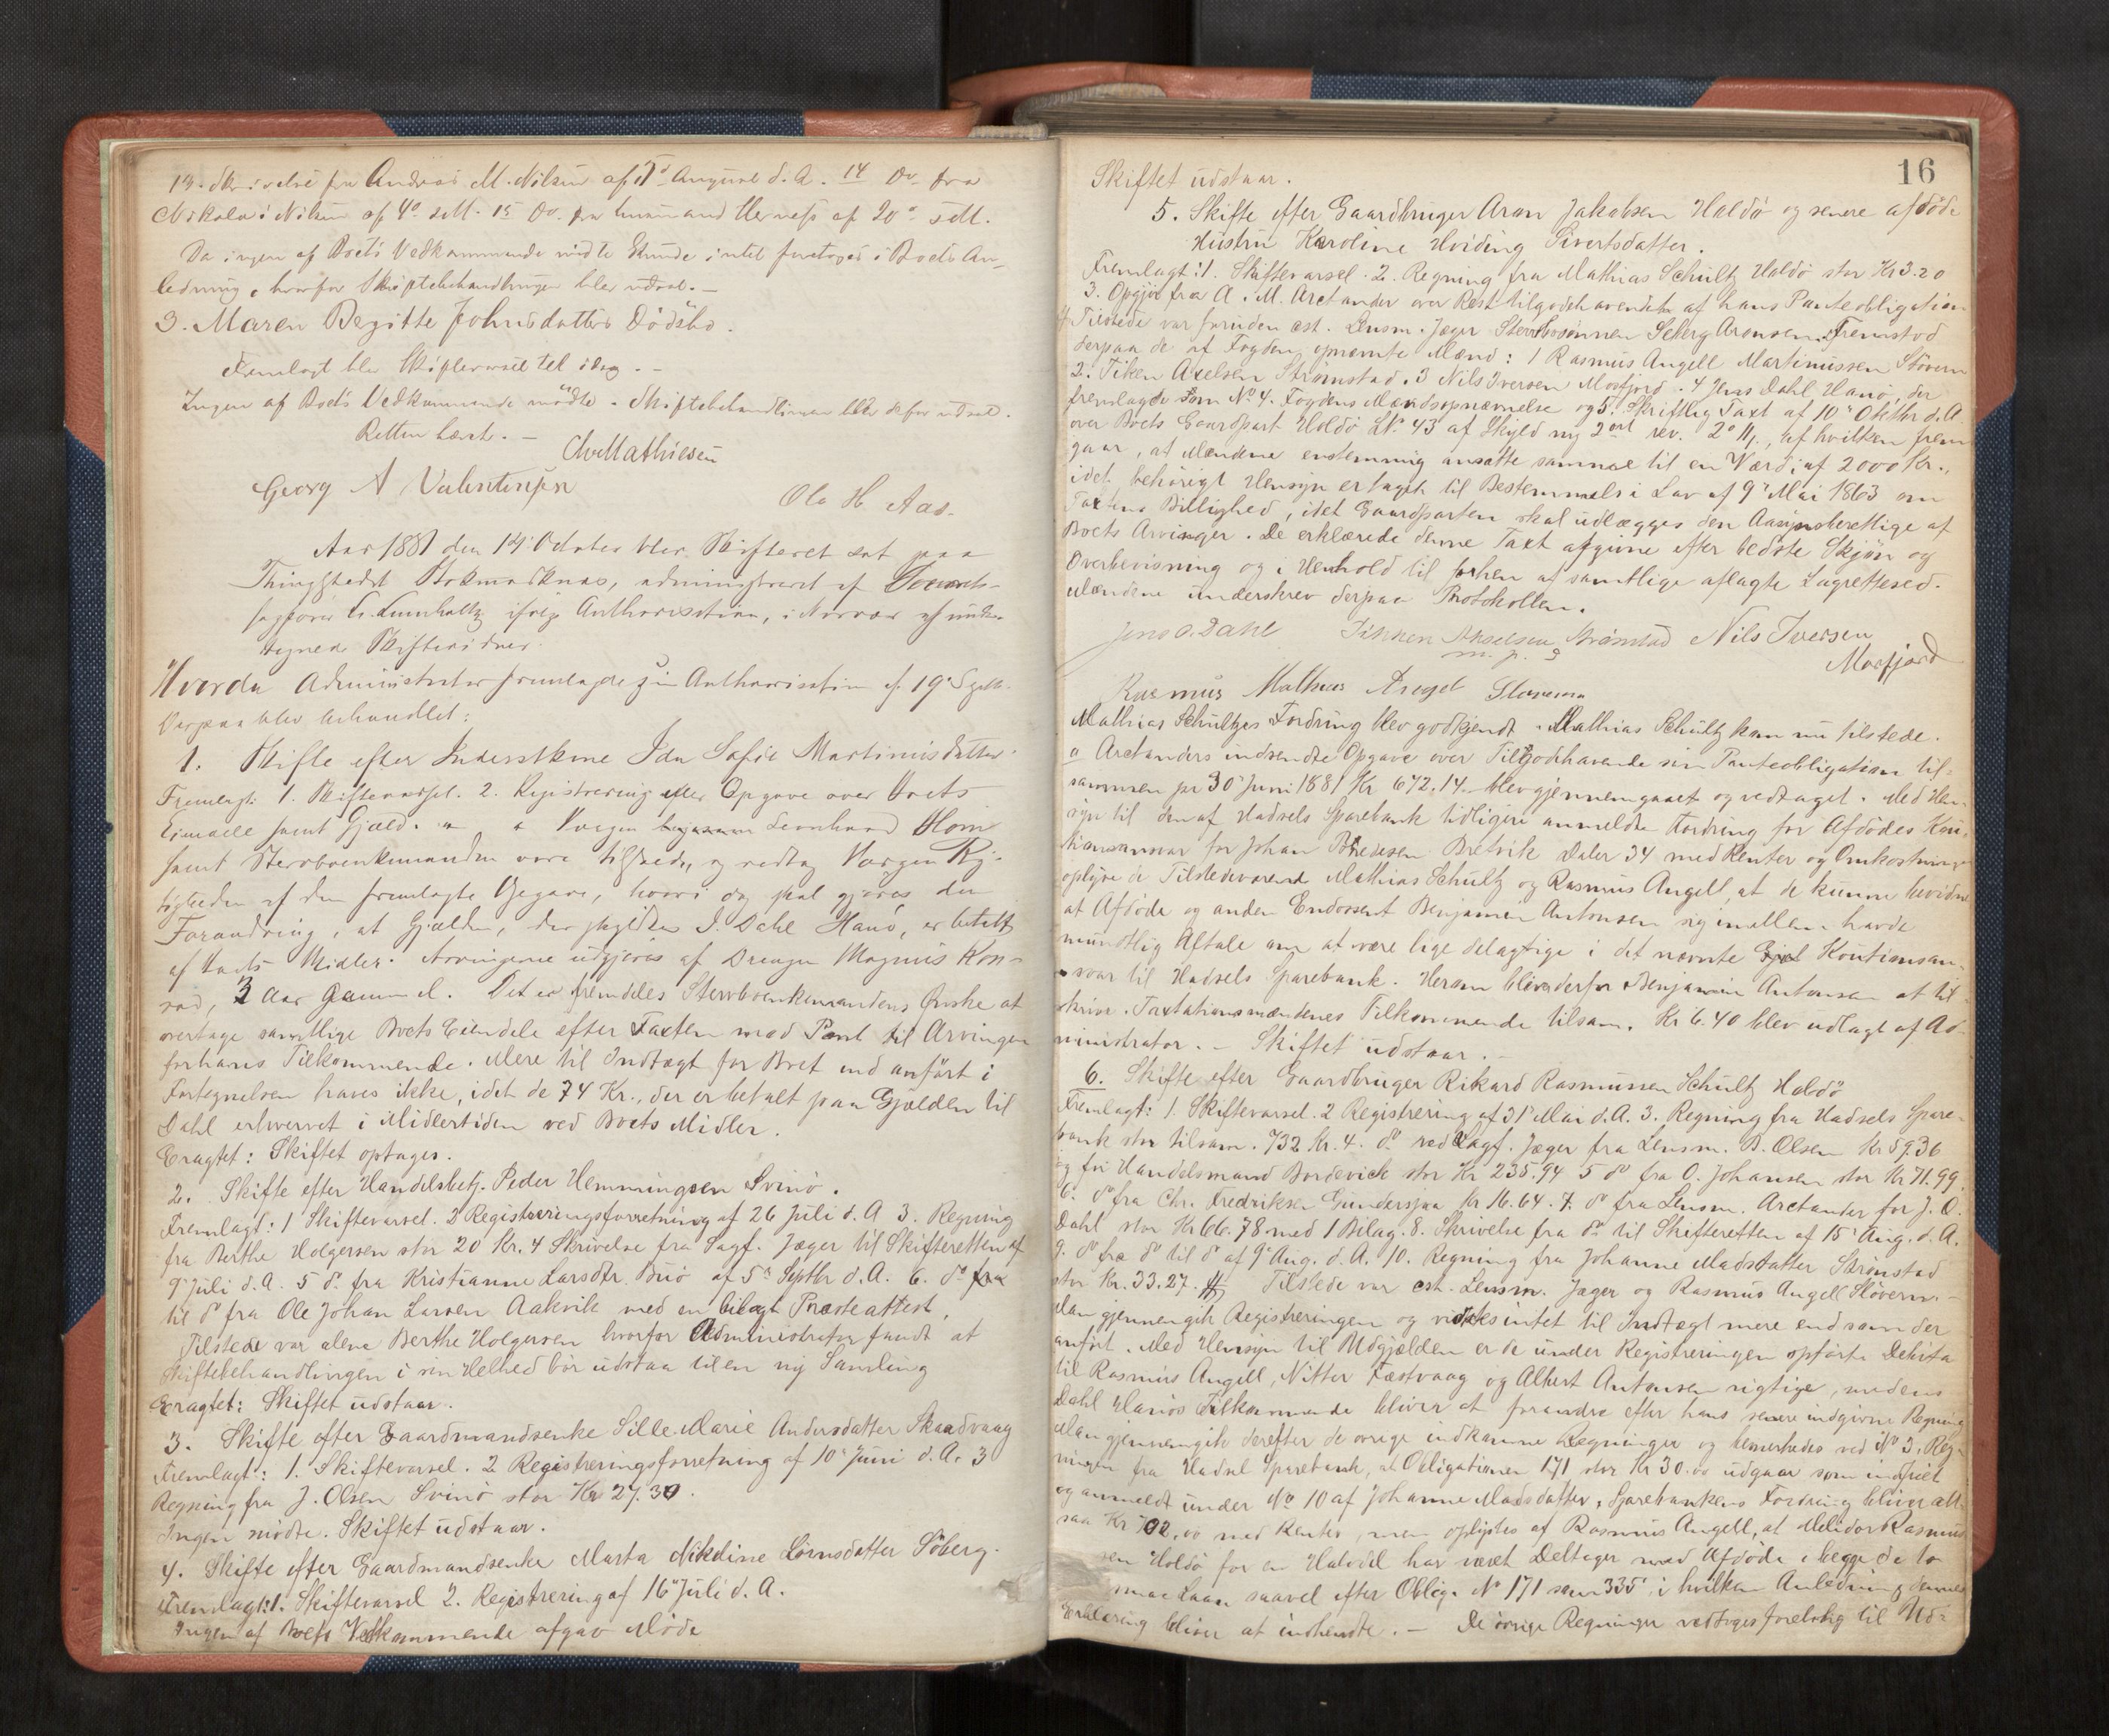 13. Skrivelse fra Andreas M. Nilsen af 1ste August d. A. 14 Do. fra
Nikolai Nilsen af 4de s. M. 15 Do. fra af 20de s. M.
Da ingen af Boets Vedkommende mødte kunde intet foretages i Boets An-
ledning, hvorfor Skiftebehandlingen blev udsat. -
3. Maren Begitte Johnsdatters Dødsbo.
Fremlagt blev Skiftevarsel til idag. -
Ingen af Boets Vedkommende mødte. Skiftebehandlingen blev derfor udsat.
Retten hævet. -
Mathiesen
Georg A Valentinsen
Ole H. Aas.
Aar 1881 den 14 October blev Skifteret sat paa
Thingstedet Stokmarknæs, administreret af
sagfører ifølge Authorisation, i Nærvær af under-
tegnede Skiftevidner.
Hvorda Administrator fremlagde sin Authorisation af 19 Septb.
Derpaa blev behandlet:
1. Skifte efter Inderstkone Ida Sofie Martinusdatter.
Fremlagt: 1. Skiftevarsel. 2. Registrering eller Opgave over Boets
Eiendele samt Gjæld. Værgen Leonhard Horn
samt Stervboenkemanden vare tilstede, og vedtog Værgen Rig-
tigheden af den fremlagte Opgave, hvori dog skal gjøres den
Forandring, at Gjælden, der skyldtes J. Dahl Hanø, er betalt
af Boets Midler. Arvingerne udgjøres af Drengen Magnus Kon-
rad, 3 Aar gammel. Det er fremdeles Stervboenkemandens Ønske at
overtage samtlige Boets Eiendele efter Taxten mod Pant til Arvingen
for hans Tilkommende. Mere til Indtægt for Boet end anført i
Fortegnelsen haves ikke, idet de 74 Kr., der er betalt paa Gjælden til
Dahl erhvervet i Midlertiden ved Boets Midler.
Eragtet: Skiftet optages.
2. Skifte efter Handelsbetj. Peder Hemmingsen Svinø.
Fremlagt: 1 Skiftevarsel. 2 Registreringsforretning af 26 Juli d. A 3. Regning
fra Berthe Holgersen stor 20 Kr. 4 Skrivelse fra Sagf. Jæger til Skifteretten af
9 Juli d. A. 5 do. fra Kristianne Larsdtr. Buø af 5te Septbr d. A. 6. do fra
til do fra Ole Johan Larsen Aakvik med en bilagt Præsteattest.
Tilstede var alene Berthe Holgersen hvorfor Administrator fandt at
Skiftebehandlingen i sin Helhed bør udstaa til en ny Samling
Eragtet: Skiftet udstaar.
3. Skifte efter Gaardmandsenke Sille Marie Andersdatter Skaadvaag
Fremlagt: 1. Skiftevarsel. 2 Registreringsforretning af 10 Juni d. A. 3
Regning fra J. Olsen Svinø stor Kr 27.30.
Ingen mødte. Skiftet udstaar.
4. Skifte efter Gaardmandsenke Marta Nikoline Lornsdatter Søberg.
Fremlagt: 1. Skiftevarsel 2. Registrering af 16 Juli d. A.
Ingen af Boets Vedkommende afgav Møde
16
Skiftet udstaar.
5. Skifte efter Gaardbruger Aron Jakobsen Haldø og senere afdøde
Hustru Karoline Hviding Sivertsdatter.
Fremlagt: 1. Skiftevarsel. 2. Regning fra Mathias Schultz Haldø stor Kr 3.20
3. Opgjør fra A. M. Arctander over Resttilgodehavendet af hans Panteobligation
Tilstede var foruden cst. Lensm. Jæger Stervbosønnen Seberg Aronsen. Fremstod
derpaa de af Fogden opnævnte Mænd: 1 Rasmus Angell Martinussen Støvern
2. Tiken Axelsen Strømstad. 3 Nils Iversen Morfjord. 4 Jens Dahl Hanø, der
fremlagde som No 4. Fogdens Mændsopnævnelse og 5. Skriftlig Taxt af 10 Oktbr d. A.
over Boets Gaardpart Haldø L.No 43 af Skyld ny 2 ort rev. 2. 11., af hvilken frem-
gaar, at Mændene enstemmig ansatte samme til en Værdi af 2000 Kr.,
idet behørigt Hensyn er taget til Bestemmels i Lov af 9 Mai 1863 om
Taxtens Billighed, idet Gaardparten skal udlægges den Aasædesberettige af
Boets Arvinger. De erklærede denne Taxt afgivne efter bedste Skjøn og
Overbevisning og i Henhold til forhen af samtlige aflagte Lagretteed.
Mændene underskrev derpaa Protokollen.
Jens O. Dahl Tikken Akselsen Strømstad Nils Iversen
m. p. s Morfjord
Rasmus Mathias Angel Støvern
Mathias Schultzes Fordring blev godkjendt. Mathias Schultz kom nu tilstede.
Arctanders indsendte Opgave over Tilgodehavende sin Panteobligation til-
sammen pr 30 Juni 1881 Kr 672.14 blev gjennemgaaet og vedtaget. Med Hen-
syn til den af Hadsels Sparebank tidligere anmeldte Fordring for Afdødes Kau-
tionsansvar for Johan Pedersen Bretvik Daler 34 med Renter og Omkostninger
oplyse de Tilstedeværende Mathias Schultz og Rasmus Angell, at de kunne bevidne
at Afdøde og anden Endossent Benjamin Antonsen sig imellem havde
mundtlig Aftale om at være lige delagtige i det nævnte Kautionsan-
svar til Hadsels Sparebank. Herom bliver derfor Benjamin Antonsen at til-
skrive. Taxtationsmændenes Tilkommende tilsam. Kr 6.40 blev udlagt af Ad-
ministrator. - Skiftet udstaar. -
6. Skifte efter Gaardbruger Rikard Rasmussen Schultz Haldø
Fremlagt: 1. Skiftevarsel. 2 Registrering af 31 Mai d. A. 3. Regning fra Hadsels Spare-
bank stor tilsam. 732 Kr. 4. do ved Sagf. Jæger fra Lensm. B. Olsen Kr 59.36
og fra Handelsmand Bordevick stor Kr 235.94 5 do fra O. Johansen stor Kr 71.99.
6. do fra Chr. Fredriksen Kr 16.64. 7. do fra Lensm. Arctander for J. O.
Dahl stor Kr 66.78 med 1 Bilag. 8. Skrivelse fra do til Skifteretten af 15 Aug. d. A.
9. do fra do til do af 9 Aug. d. A. 10. Regning fra Johanne Madsdatter Strømstad
stor Kr. 33.27. Tilstede var cst. Lensm. Jæger og Rasmus Angell Støvern. -
Man gjennemgik Registreringen og vidstes intet til Indtægt mere end som der
anført. Med Hensyn til Udgjælden er de under Registreringen opførte Debita
til Rasmus Angell, Nitter Fæstvaag og Albert Antonsen rigtige, medens
Dahl Hanøs Tilkommende bliver at forandre efter hans senere indgivne Regning
Man gjennemgik derefter de øvrige indkomne Regninger og bemerkedes ved No 3, Reg-
ningen fra Hadsel Sparebank, at Obligationen 171 stor Kr 30.00 udgaar som indfriet
og anmeldt under No 10 af Johanne Madsdatter, Sparebankens Fordring bliver alt-
saa Kr 702,00 med Renter, men oplystes af Rasmus Angell, at Melidor Rasmus-
sen Haldø for en Halvdel har været Deltager med Afdøde i begge de to
Laan saavel efter Oblig. No 171 som 335 i hvilken Anledning dennes
Erklæring bliver at indhendte. - De øvrige Regninger vedtoges foreløbig til Ud-